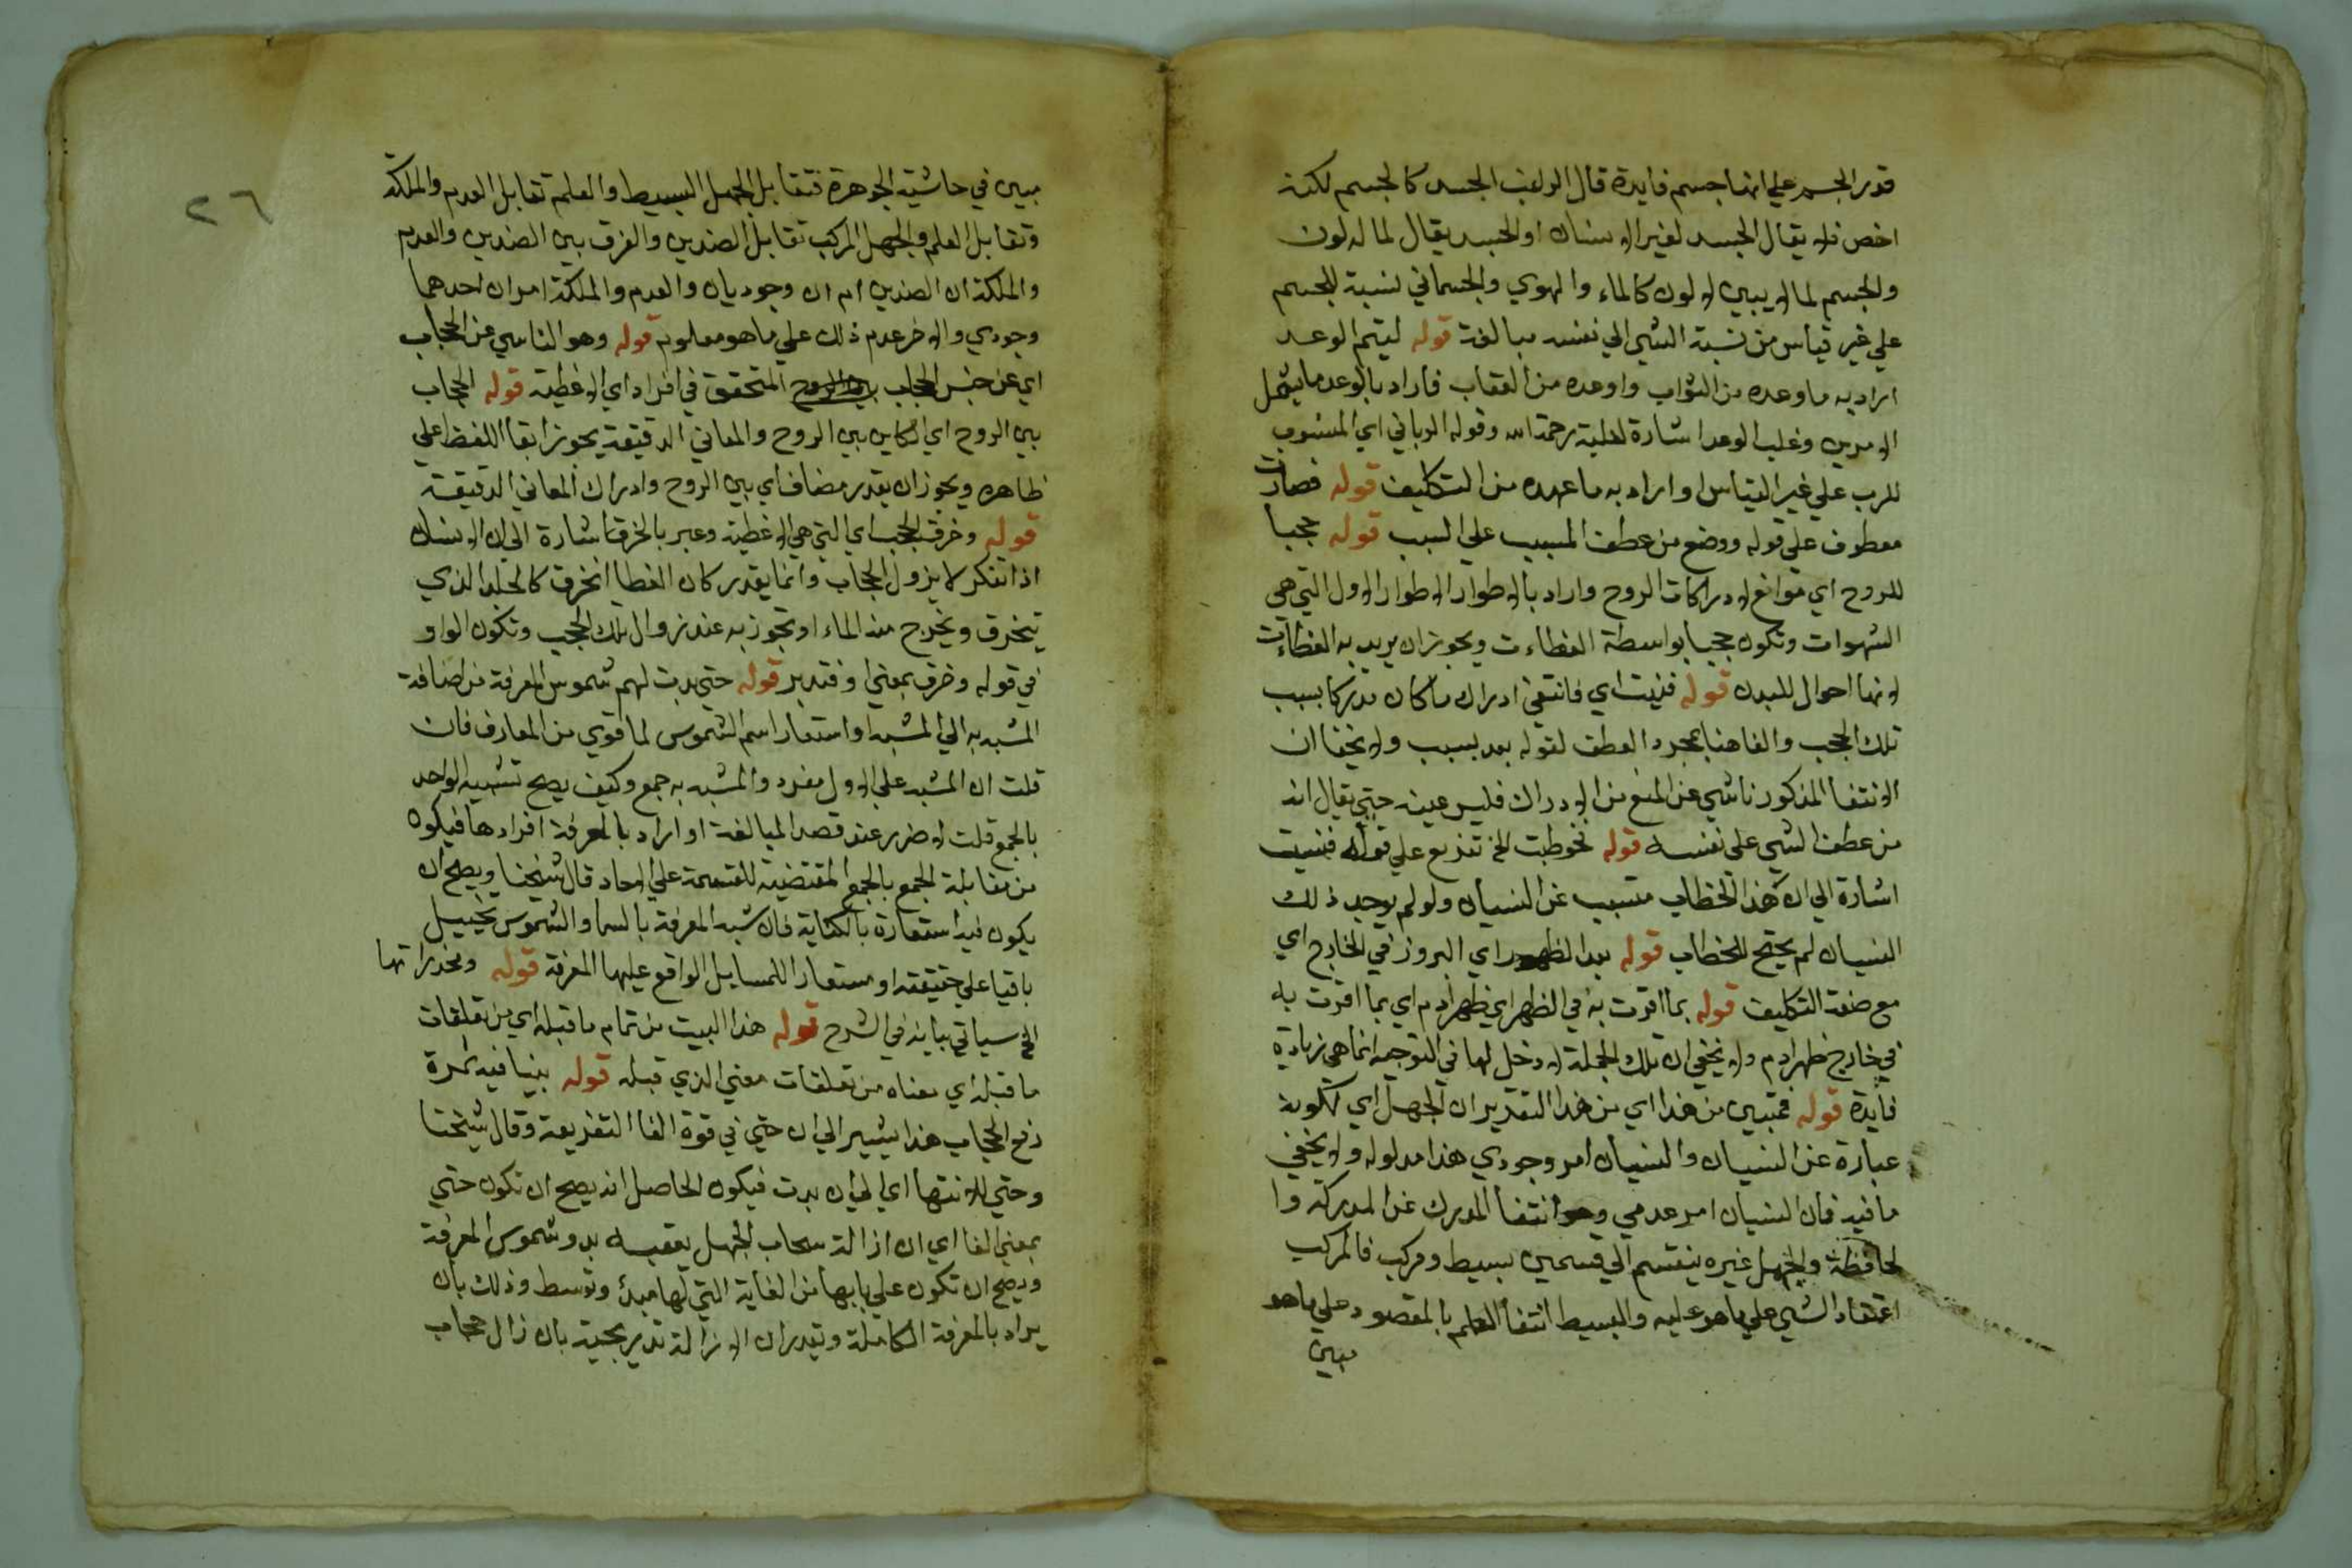 قدر الجسد علي انها جسم فايدة قال الراغب الجسد كالجسم لكنه
اخص فلا يقال الجسد لغير الانسان او الجسد يقال لما له لون
والجسم لما لا يبين لا لون كالماء والهوي والجسماني نسبة للجسم
علي غير قياس من نسبة الشي الي نفسه مبالغة قوله ليتم الوعد
اراد به ما وعده من الثواب واوعده من العقاب فاراد بالوعد ما يشمل
الامرين وغلب الوعد اشارة لغلبة رحمة الله وقوله الرباني اي المنسوب
للرب علي غير القياس او اراد به ما عهده من التكليف قوله فصارت
معطوف علي قوله ووضع من عطف المسبب علي السبب قوله حجبا
للروح اي موانع لادراكات الروح واراد بالاطوار الاطوار الاول التي هي
الشهوات وتكون حجبا بواسطة الغطاءت ويجوز ان يريد به الغطاءت
لانها احوال للبدن قوله فنيت اي فانتفي ادراك ما كان مدركا بسبب
تلك الحجب والفا هنا لمجرد العطف لقوله بعد بسبب ولا يخفا ان
الانتفا المذكور ناشي عن المنع من الادراك فليس عينه حتي يقال انه
من عطف الشي علي نفسه قوله فخوطبت الخ تفريع علي قوله فنسيت
اشارة الي ان هذا الخطاب متسبب عن النسيان ولو لم يوجد ذلك
النسيان لم يحتج للخطاب قوله بعد الظهور اي البروز في الخارج اي
مع صفة التكليف قوله بما اقرت به في الظهر اي ظهر ادم اي بما اقرت به
في خارج ظهر ادم ولا يخفي ان تلك الجملة لا دخل لها في التوجيه انما هي زيادة
فايدة قوله فتبين من هذا اي من هذا التقدير ان الجهل اي لكونه
عبارة عن النسيان والنسيان امر وجودي هذا مدلوله ولا يخفي
ما فيه فان النسيان امر عدمي وهو انتفا المدرك عن المدركة وا
لحافظة والجهل غيره ينقسم الي قسمين بسيط ومركب فالمركب
اعتقاد الشي علي ما هو عليه والبسيط انتفا العلم بالمقصود علي ما هو
مبين
٢٦
مبين في حاشية الجوهرة فتقابل الجهل البسيط والعلم تقابل العدم والملكة
وتقابل العلم والجهل المركب تقابل الضدين والفرق بين الضدين والعدم
والملكة ان الضدين امران وجوديان والعدم والملكة امران احدهما
وجودي والاخر عدم ذلك علي ما هو معلوم قوله وهو الناشي عن الحجاب
اي عن جنس الحجاب بين الروح المتحقق في افراد اي الاغطية قوله الحجاب
بين الروح اي الكاين بين الروح والمعاني الدقيقة يجوز ابقا اللفظ علي
ظاهره ويجوز ان يقدر مضاف اي بين الروح وادراك المعاني الدقيقة
قوله وخرق الحجب اي التي هي الاغطية وعبر بالخرق اشارة الي ان الانسان
اذا تفكر لا يزول الحجاب وانما يقدر كان الغطا انخرق كالجلد الذي
يتخرق ويخرج منه الماء او تجوز به عند زوال تلك الحجب وتكون الواو
في قوله وخرق بمعني او فتدبر قوله حتي بدت لهم شموس المعرفة من اضافة
المشبه به الي المشبه او استعار اسم الشموس لما قوي من المعارف فان
قلت ان المشبه علي الاول مفرد والمشبه به جمع وكيف يصح تشبيه الواحد
بالجمع قلت لا ضرر عند قصد المبالغة او اراد بالمعرفة افرادها فيكون
من مقابلة الجمع بالجمع المقتضية للقسمة علي الاحاد قال شيخنا ويصح ان
يكون فيه استعارة بالكناية فان شبه المعرفة بالسما والشموس تخييل
باقيا علي حقيقته او مستعار اللمسايل الواقع عليها المعرفة قوله ومخدراتها
الخ سياتي بيانه في الشرح قوله هذا البيت من تمام ما قبله اي من تعلقات
ما قبله اي معناه من تعلقات معني الذي قبله قوله بينا فيه ثمرة
رفع الحجاب هذا يشير الي ان حتي في قوة الفا التفريعة وقال شيخنا
وحتي للانتها اي الي ان بدت فيكون الحاصل انه يصح ان تكون حتي
بمعني الفا اي ان ازالة سحاب الجهل يعقبه بدو شموس المعرفة
ويصح ان تكون علي بابها من الغاية التي لها مبدئ وتوسط وذلك بان
يراد بالمعرفة الكاملة وتقدر ان الازالة تدريجية بان زال حجاب